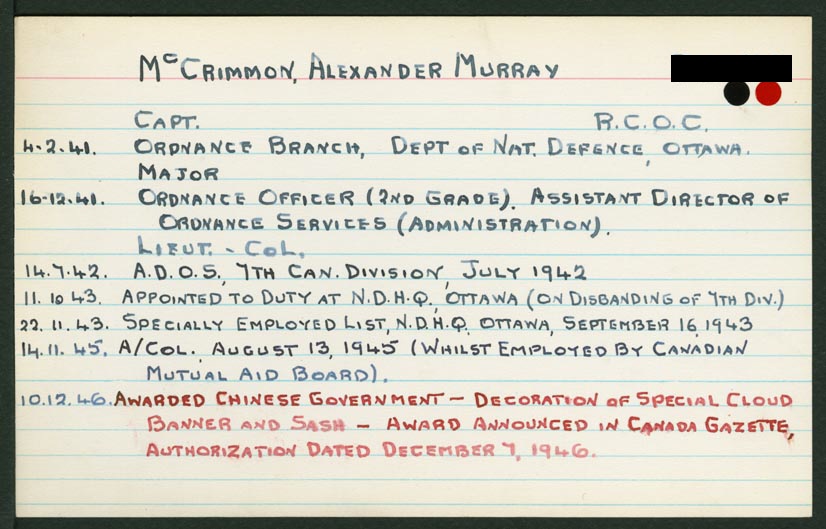 McCRIMMON, ALEXANDER MURRAY
CAPT. R.C.O.C.
4.2.41. ORDNANCE BRANCH, DEPT OF NAT. DEFENCE, OTTAWA.
MAJOR
16.12.41. ORDNANCE OFFICER (2ND GRADE). ASSISTANT DIRECTOR OF
ORDNANCE SERVICES (ADMINISTRATION).
LIEUT. - COL.
14.7.42. A.D.O.S., 7TH CAN. DIVISION, JULY 1942
11.10 43. APPOINTED TO DUTY AT N.D.H.Q., OTTAWA (ON DISBANDING OF 7TH DIV.)
22.11.43. SPECIALLY EMPLOYED LIST, N.D.H.Q. OTTAWA, SEPTEMBER 16, 1943
14.11.45. A/COL., AUGUST 13, 1945 (WHILST EMPLOYED BY CANADIAN
MUTUAL AID BOARD).
10.12.46. AWARDED CHINESE GOVERNMENT - DECORATION OF SPECIAL CLOUD
BANNER AND SASH - AWARD ANNOUNCED IN CANADA GAZETTE,
AUTHORIZATION DATED DECEMBER 7, 1946.